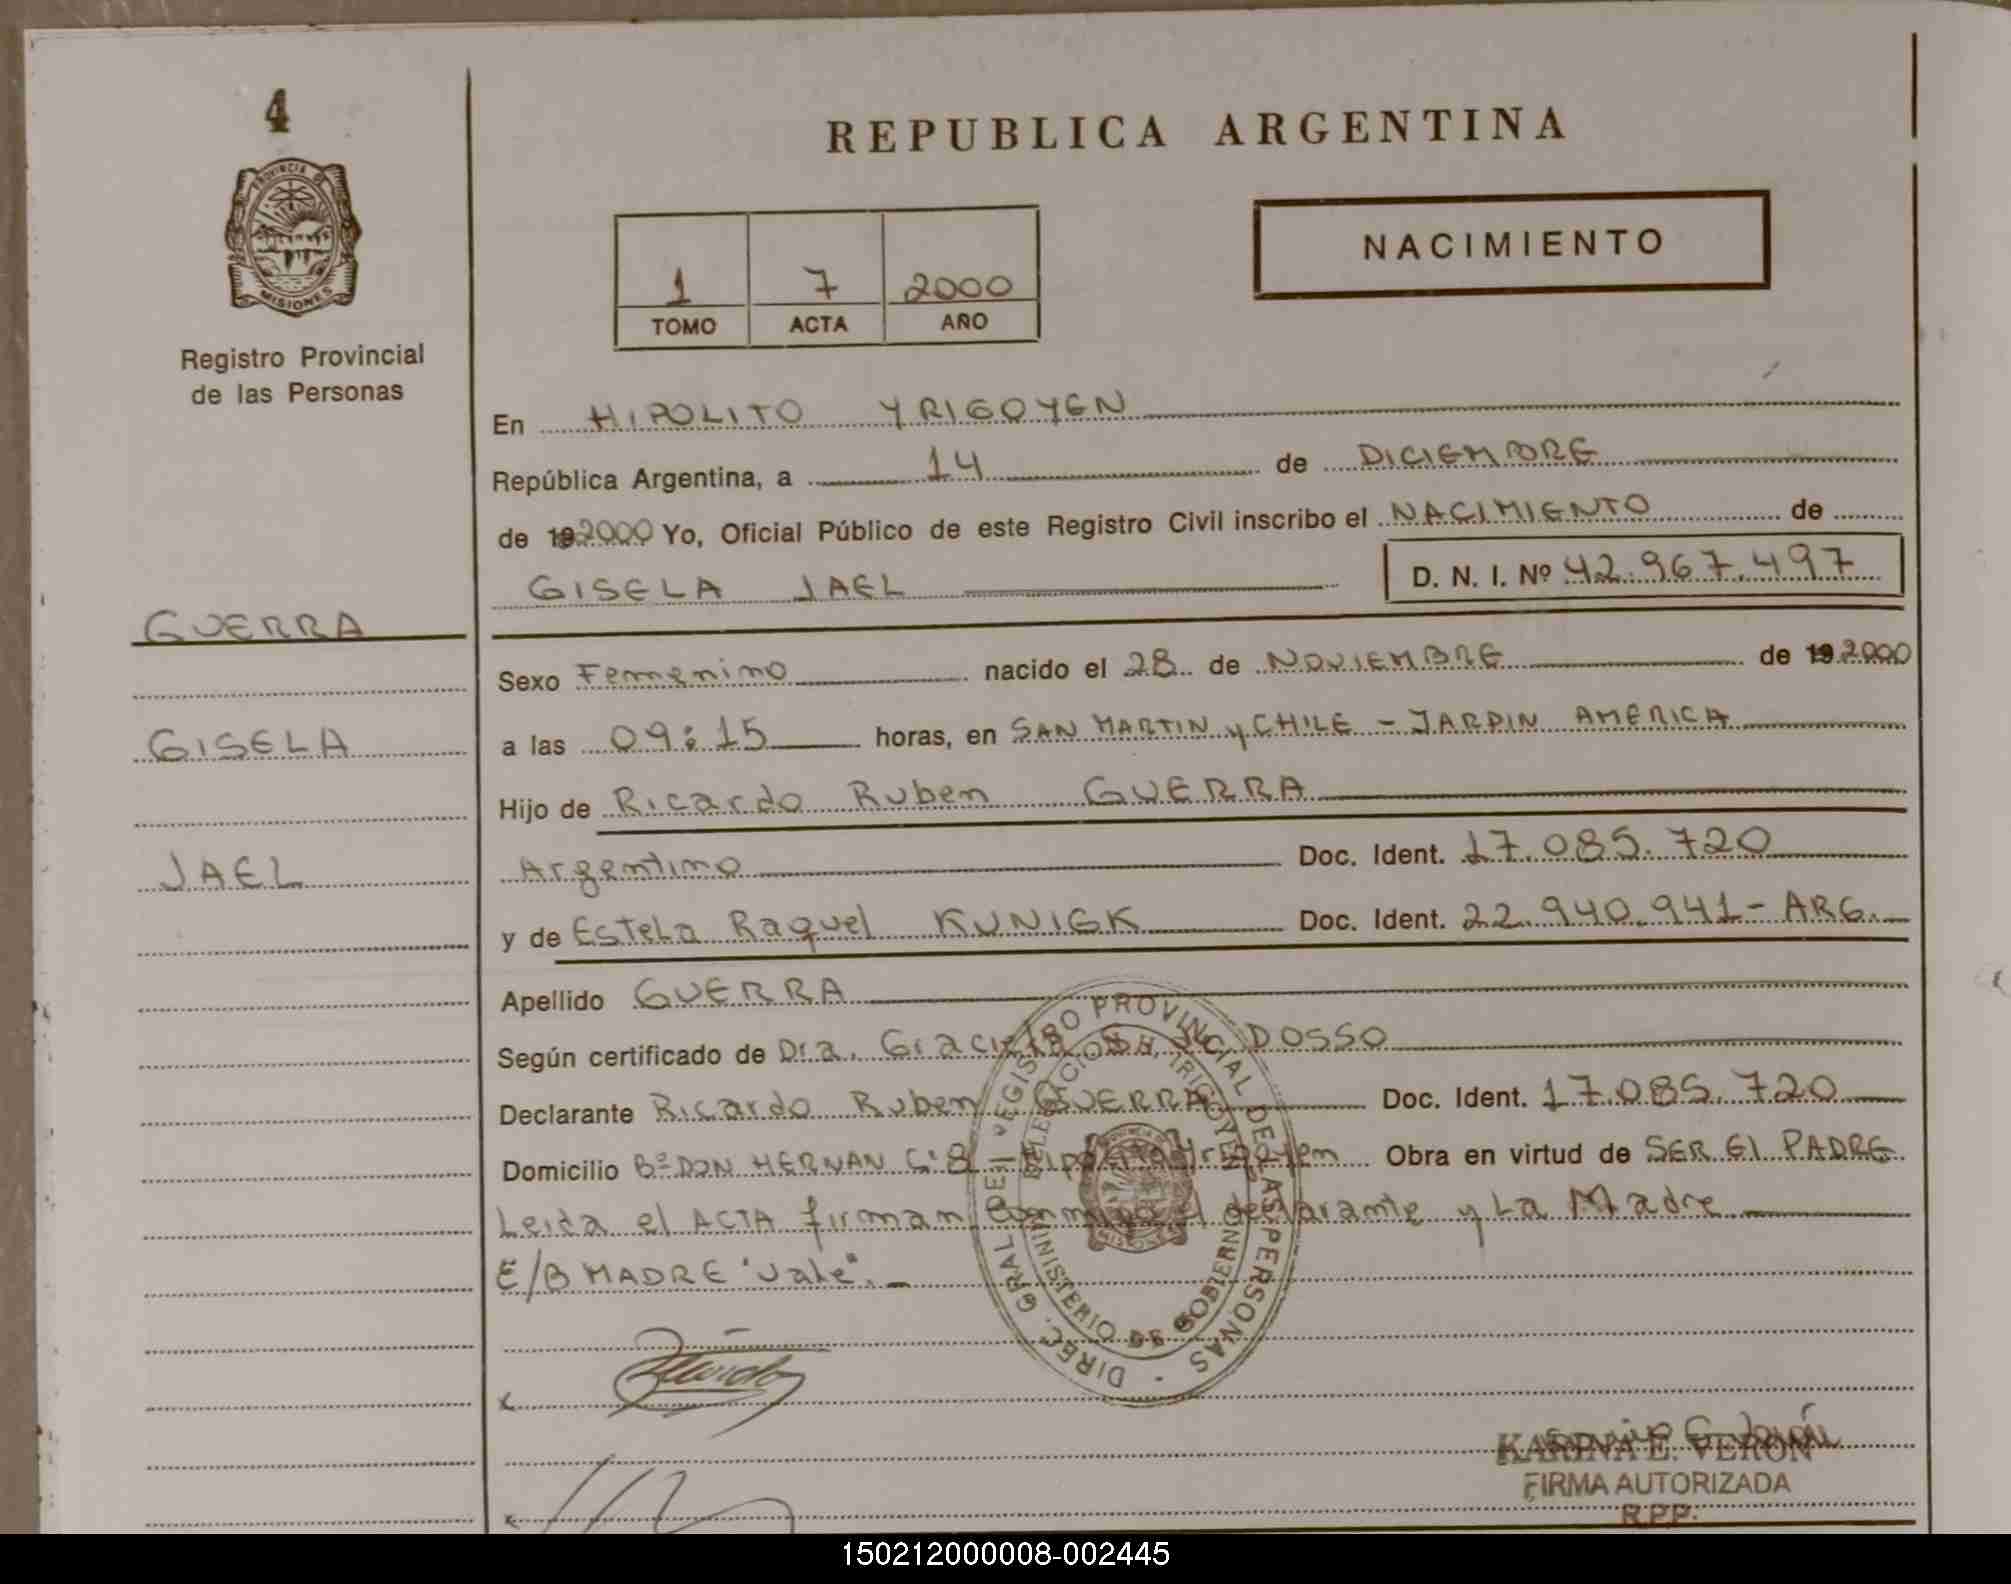 4
REPUBLICA ARGENTINA
PROVINCIA DE
MISIONES
Registro Provincial
de las Personas
1 7 2000
TOMO ACTA AÑO
NACIMIENTO
En HIPOLITO YRIGOYEN
República Argentina, a 14 de DICIEMBRE
de 192000 Yo, Oficial Público de este Registro Civil inscribo el NACIMIENTO de
GISELA JAEL D. N. I. Nº 42.967.497
GUERRA
GISELA
JAEL
Sexo Femenino nacido el 28 de NOVIEMBRE de 192000
a las 09:15 horas, en SAN MARTIN y CHILE - JARDIN AMERICA
Hijo de Ricardo Ruben GUERRA
Argentino Doc. Ident. 17.085.720
y de Estela Raquel KUNIGK Doc. Ident. 22.940.941 - ARG.
Apellido GUERRA
Según certificado de Dra. DOSSO
Declarante Ricardo Ruben GUERRA Doc. Ident. 17.085.720
Domicilio Bº DON HERNAN C:8 - Hipolito Yrigoyen Obra en virtud de SER El PADRE
Leida el ACTA firman conmigo el declarante y La Madre
E/B MADRE "Vale". -
DIREC. GRAL DEL REGISTRO PROVINCIAL DE LAS PERSONAS
DELEGACION H. IRIGOYEN
MINISTERIO DE GOBIERNO
MISIONES
KARINA E. VERON
FIRMA AUTORIZADA
R.P.P.
150212000008-002445